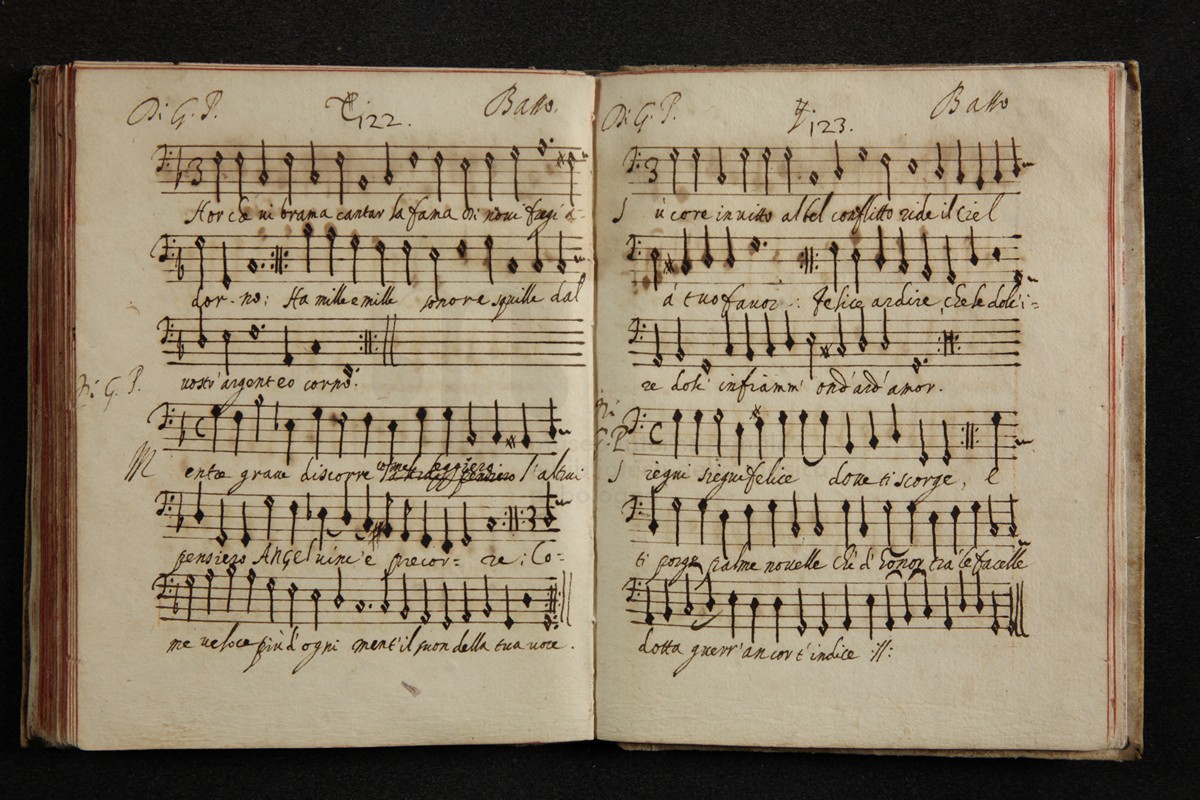 Di G. P. 122. Basso.
Hor che vi brama cantar la fama di novi fregi a-
dor-no: Ha mille e mille sonore squille dal
vostr'argenteo corno.
Di G. P.
Mentre grave discorre l'altrui
pensiero Angel vince e precor= re: Co=
me veloce più d'ogni ment'il suon della tua voce.
Di G. P. 123. Basso
Su core invitto al bel conflitto ride il Ciel
à tuo favor: felice ardire, che le dol' i=
re dolc' infiamm' ond'ard'amor.
Di G. P.
Siegui siegui felice dove ti scorge, e
ti porge palme novelle ch'è d'honor trà le facelle
dotta guerr'ancor t'indice :||: